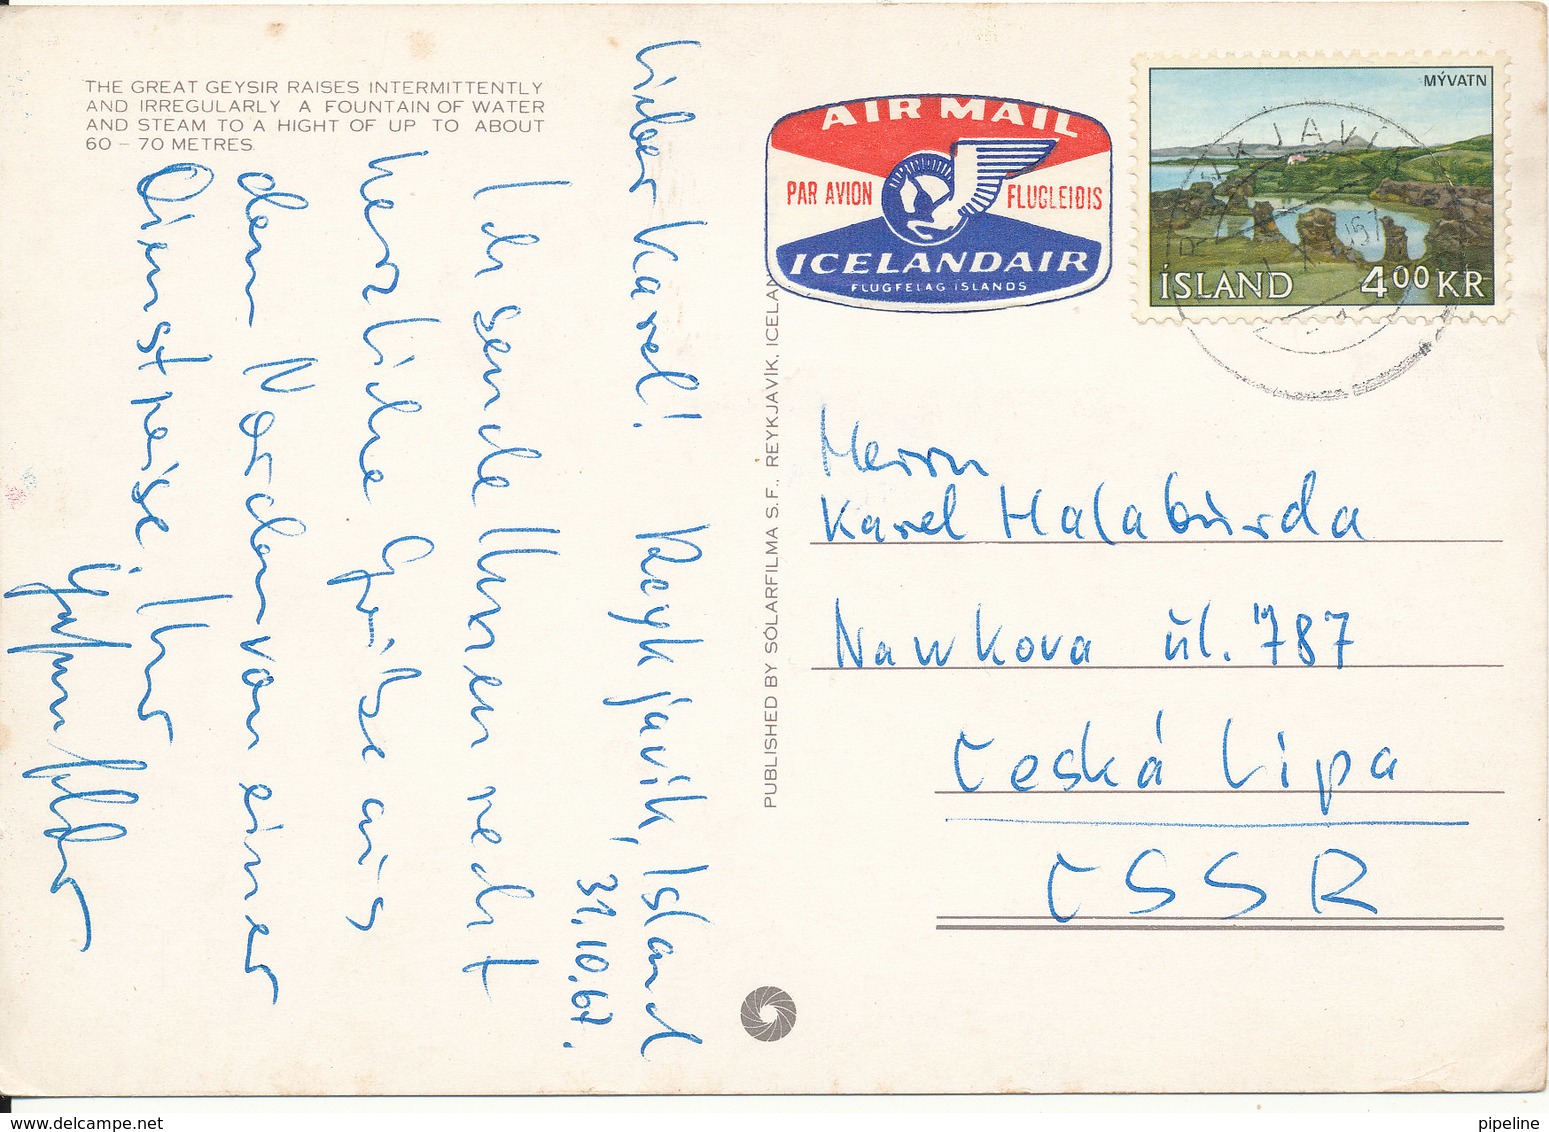 THE GREAT GEYSIR RAISES INTERMITTENTLY
AND IRREGULARLY A FOUNTAIN OF WATER
AND STEAM TO A HIGHT OF UP TO ABOUT
60 – 70 METRES.
Lieber Karel! Reykjavik, Island
31.10.67.
Ich sende Ihnen recht
herzliche Grüße aus
dem Norden von einer
Dienstreise. Ihr
PUBLISHED BY SÓLARFILMA S.F., REYKJAVIK, ICELAN
AIR MAIL
PAR AVION FLUGLEIÐIS
ICELANDAIR
FLUGFELAG ISLANDS
MÝVATN
ÍSLAND 400 KR
Herrn
Karel Halabúrda
Nawkova úl. 787
Česká Lípa
ČSSR
pipeline